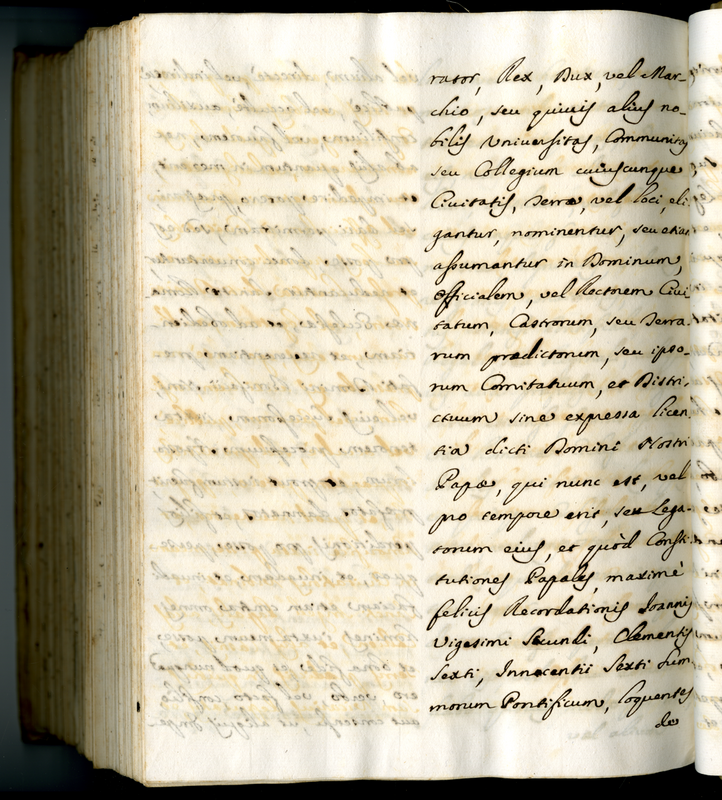 rator, Rex, Dux, vel Mar-
chio, seu quiuis alius no-
bilis Vniuersitas, Communitas
seu Collegium cuiuscunque
Ciuitatis, Terræ, vel loci, eli-
gantur, nominentur, seu etiam
assumantur in Dominum,
Officialem, vel Rectorem Ciui
tatum, Castrorum, seu Terra-
rum prædictorum, seu ipso-
rum Comitatuum, et Distri-
ctuum sine expressa licen
tia dicti Domini Nostri
Papæ, qui nunc est, vel
pro tempore erit, seu Lega-
torum eius, et quòd Consti
tutiones Papales, maximè
felicis Recordationis Ioannis
Vigesimi Secundi, Clementis
Sexti, Innocentii Sexti Sum
morum Pontificum, loquentes
de